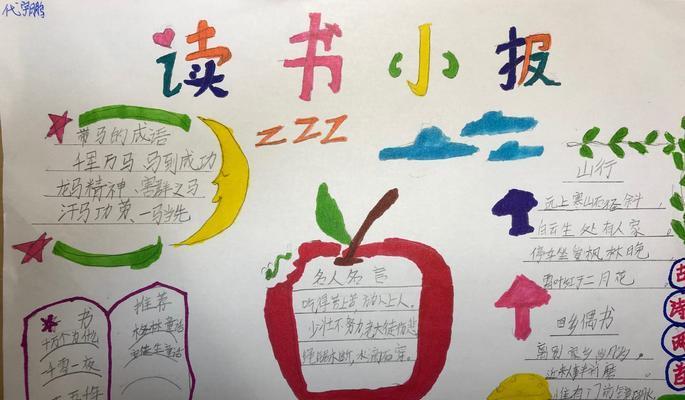 读书小报
带马的成语
千军万马、马到成功
龙马精神、害群之马
汗马功劳、一马当先
zzz
名人名言
吃得苦上苦 方为人上人。
少壮不努力 老大徒伤悲
绳锯木断，水滴石穿。
山行
远上寒山石径斜，
白云生处有人家
停车坐爱枫林晚
霜叶红于二月花。
回乡偶书
离别家乡岁月多，
近来人事半消磨
惟有门前镜湖水
古诗两首
书
十万个为什么
十雪一夜
推荐
格林童话
安徒生童话